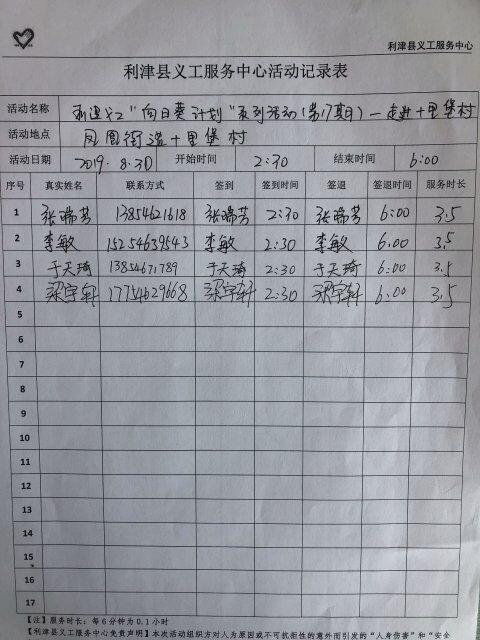 利津县义工服务中心
利津县义工服务中心活动记录表
活动名称 利津义工"向日葵计划"系列活动(第17期)—走进十里堡村
活动地点 凤凰街道十里堡村
活动日期 2019.8.30 开始时间 2:30 结束时间 6:00
序号 真实姓名 联系方式 签到 签到时间 签退 签退时间 服务时长
1 张瑞芳 13854621618 张瑞芳 2:30 张瑞芳 6:00 3.5
2 李敏 15254639543 李敏 2:30 李敏 6.00 3.5
3 于天琦 13854671789 于天琦 2:30 于天琦 6:00 3.5
4 梁宇轩 17754629668 梁宇轩 2:30 梁宇轩 6:00 3.5
5
6
7
8
9
10
11
12
13
14
15
16
17
【注】服务时长:每6分钟为0.1小时
【利津县义工服务中心免责声明】本次活动组织方对人为原因或不可抗拒性的意外而引发的"人身伤害"和"安全